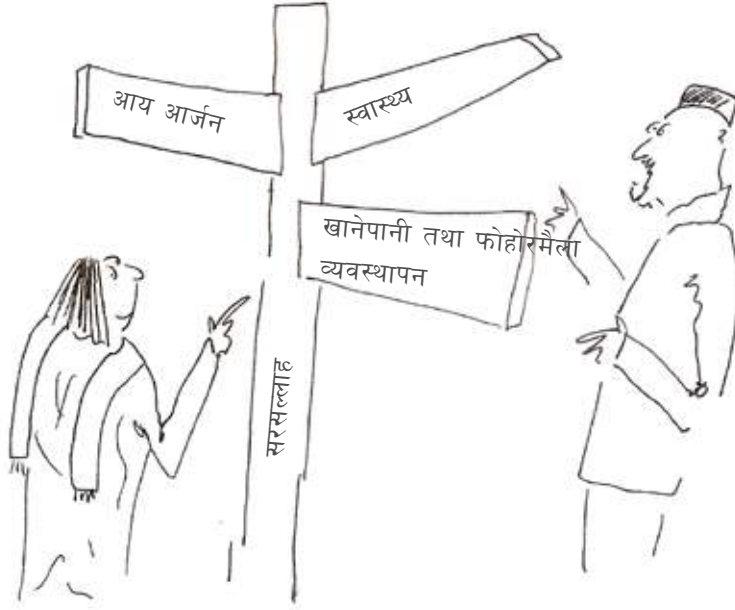 आय आर्जन
स्वास्थ्य
खानेपानी तथा फोहोरमैला
व्यवस्थापन
सरसल्लाह